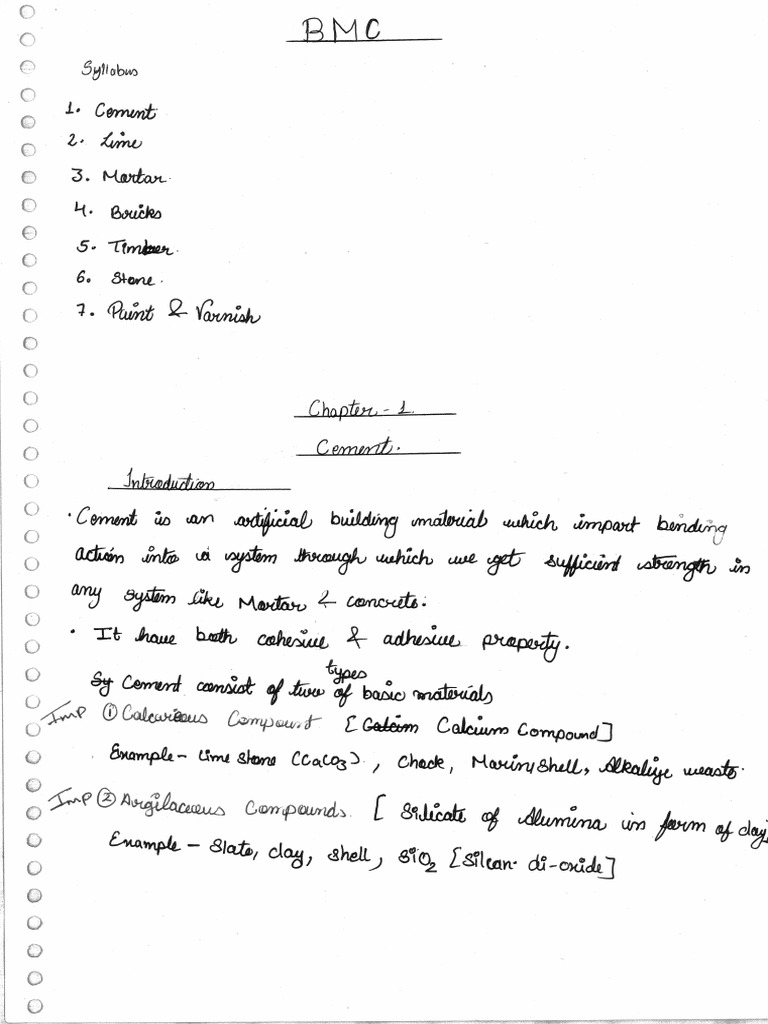 BMC
Syllabus
1. Cement
2. Lime
3. Mortar.
4. Bricks
5. Timber.
6. Stone.
7. Paint & Varnish
Chapter - 1.
Cement.
Introduction
· Cement is an artificial building material which impart bending
action into a system through which we get sufficient strength in
any system like Mortar & concrete.
· It have both cohesive & adhesive property.
Sy Cement consist of two types of basic materials
Imp ① Calcarious Compount [Calcim Calcium Compound]
Example - Lime stone (CaCO3), Chack, Mariny shell, Alkaliye weaste.
Imp ② Argilaceous Compounds. [Silicate of Alumina in form of clay]
Example - Slate, clay, shell, SiO2 [Silcan di-oxide]